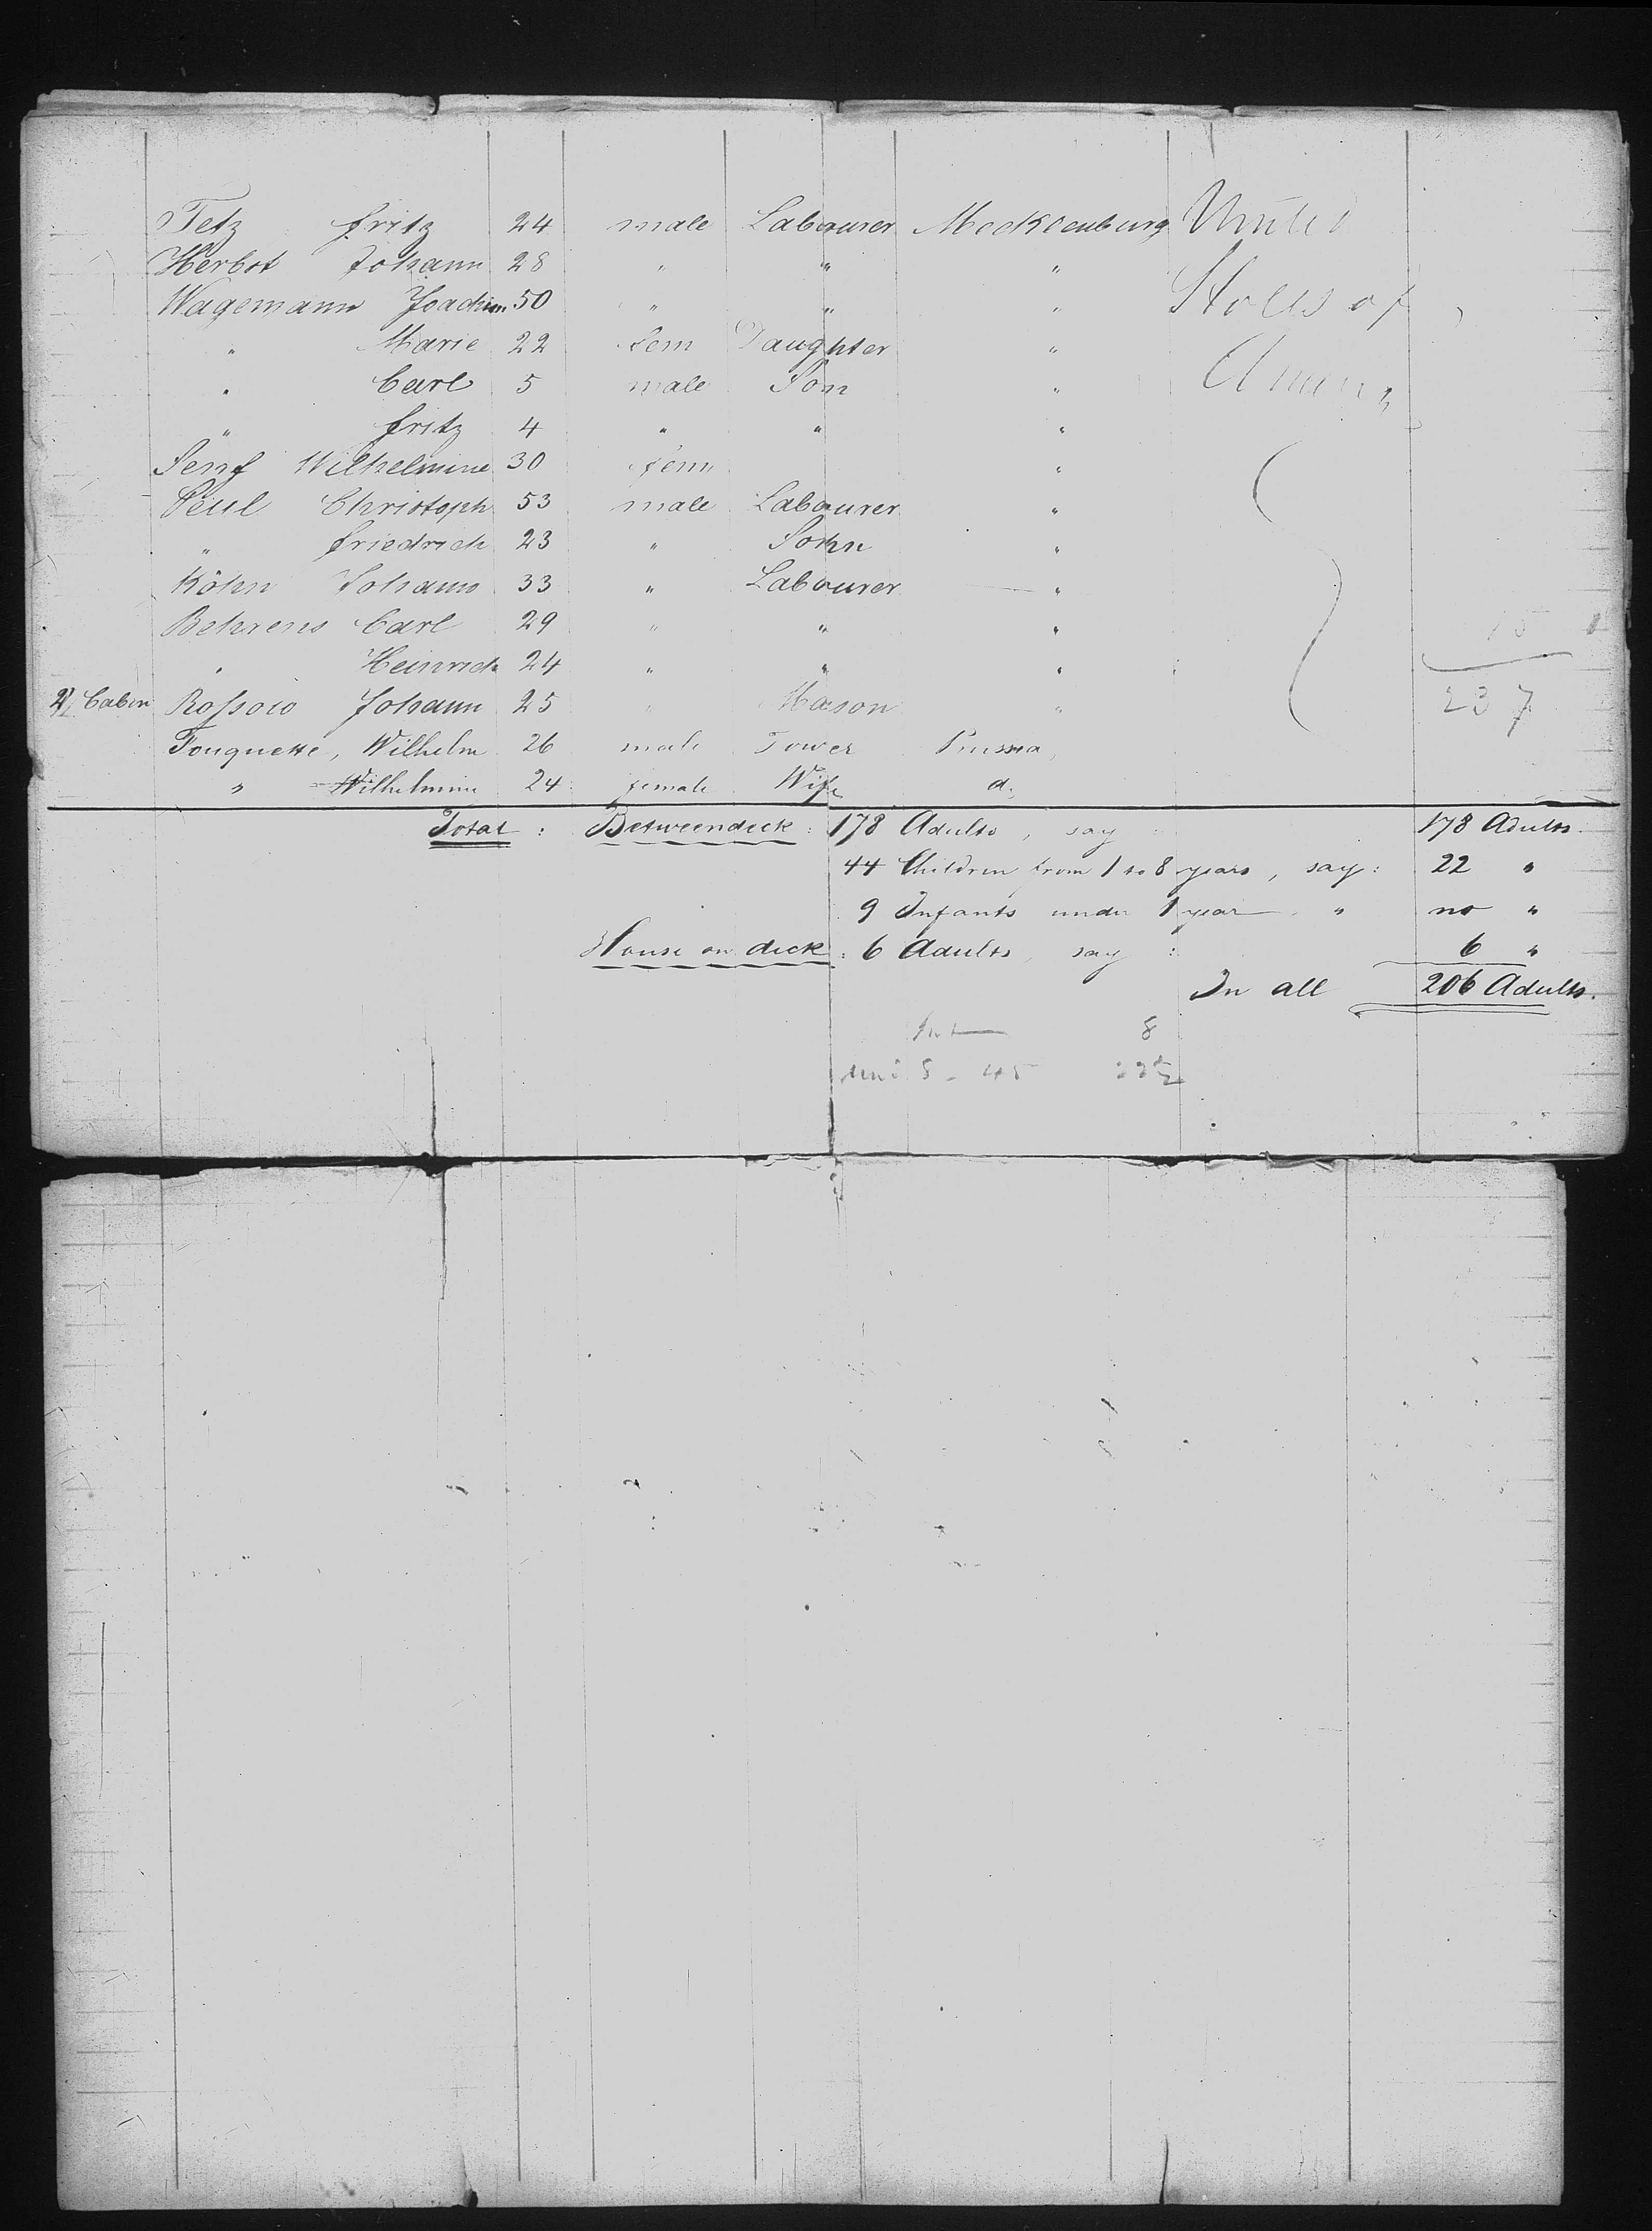 Tetz Fritz 24 male Labourer Mecklenburg United
Herbst Johann 28 " " "
Wagemann Joachim 50 " " " States of
" Marie 22 fem Daughter "
" Carl 5 male Son " America
" Fritz 4 " " "
Senf Wilhelmine 30 fem "
Peül Christoph 53 male Labourer "
" Friedrich 23 " Sohn "
Köhn Johann 33 " Labourer "
Behrens Carl 29 " " " 15
" Heinrich 24 " " "
2/ Cabin Roſsow Johann 25 " Mason " 237
Fouquette, Wilhelm 26 male Prussia
" Wilhelmine 24 female Wife d.
Total : Betweendeck : 178 Adults, say : 178 Adults.
44 Children from 1 to 8 years, say : 22 "
9 Infants under 1 year " no "
House on deck : 6 Adults, say : 6 "
In all 206 Adults.
8
8 - 45 22½